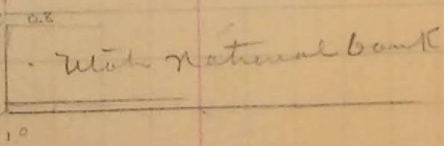 0.8
Utah National bank
10